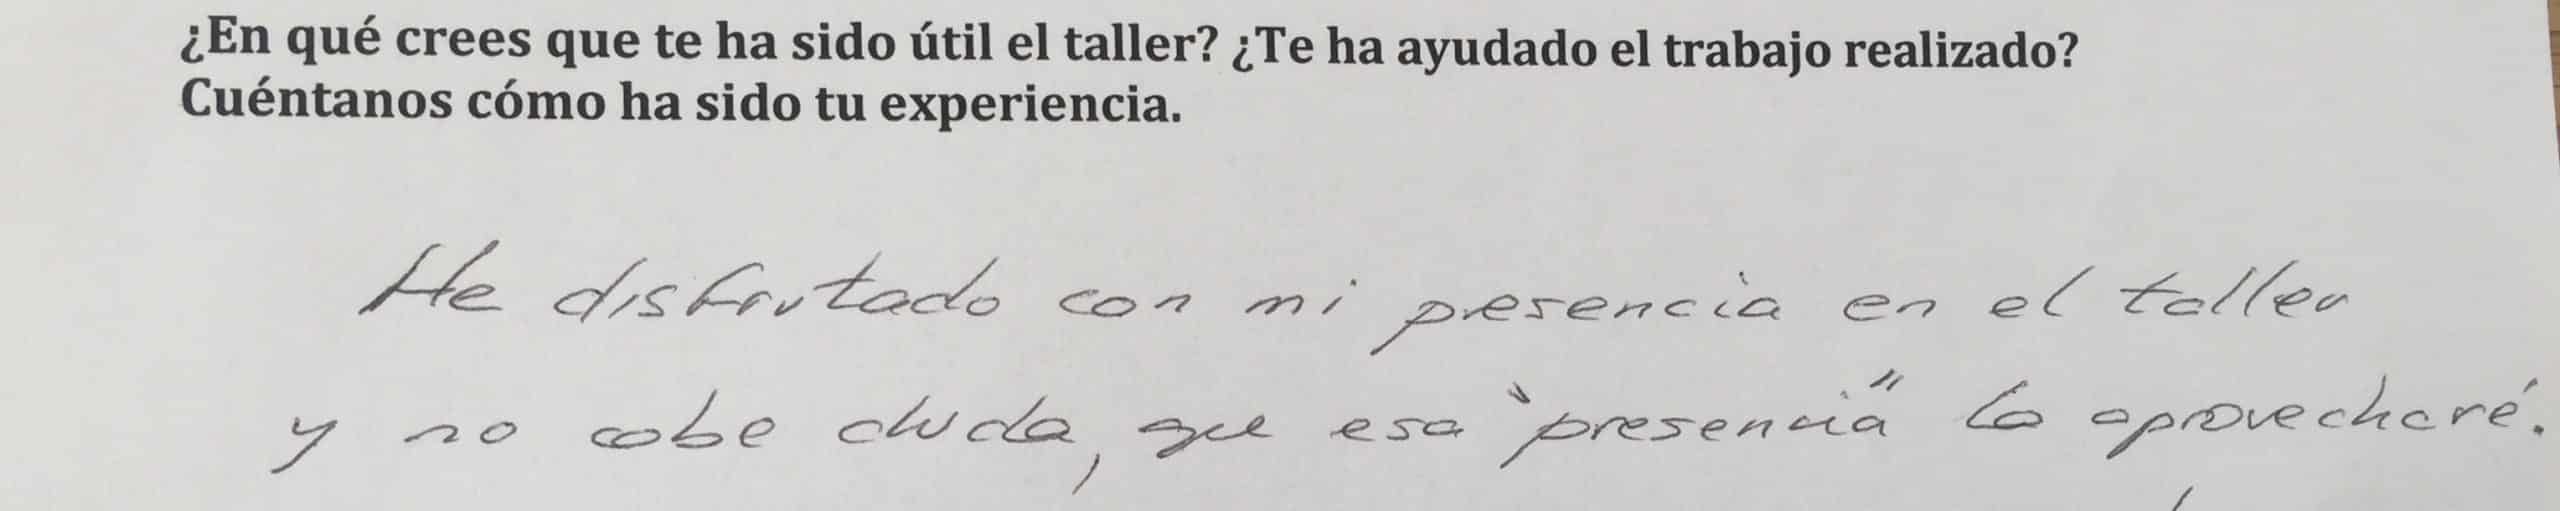 ¿En qué crees que te ha sido útil el taller? ¿Te ha ayudado el trabajo realizado?
Cuéntanos cómo ha sido tu experiencia.
He disfrutado con mi presencia en el taller
y no cabe duda, que esa "presencia" la aprovecharé.